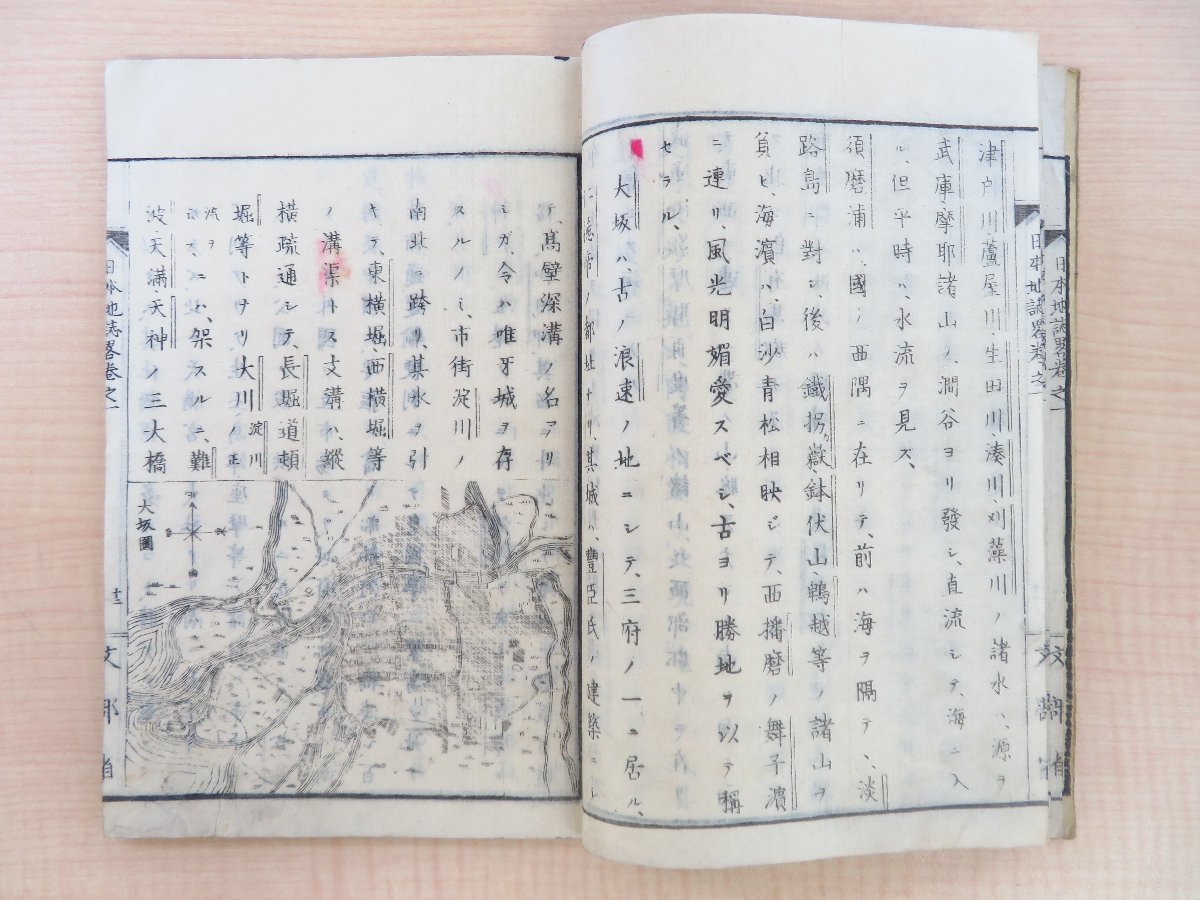 津門川、蘆屋川、生田川、湊川、刈藻川ノ諸水ハ、源ヲ
武庫、摩耶諸山ノ、澗谷ヨリ發シ、直流シテ、海ニ入
ル、但平時ハ、水流ヲ見ズ、
須磨浦ハ、國ノ西隅ニ在リテ、前ハ海ヲ隔テヽ、淡
路島ニ對シ、後ハ鐵拐嶽、鉢伏山、鵯越等ノ諸山ヲ
負ヒ、海濱ハ、白沙青松相映ジテ、西播磨ノ舞子濱
ニ連リ、風光明媚愛スベシ、古ヨリ勝地ヲ以テ稱
セラル、
大坂ハ、古ノ浪速ノ地ニシテ、三府ノ一ニ居ル、
仁德帝ノ都址ナリ、其城ハ、豐臣氏ノ建築ニシ
テ、高壁深溝
ノ名アリ
シガ、今ハ唯牙城ヲ存
スルノミ、市街淀川ノ
南北ニ跨リ、其水ヲ引
キテ、東横堀西横堀等
ノ溝渠トス支溝ハ、縱
横疏通シテ、長堀道頓
堀等トナリ大川淀川ノ正
流ヲ
ニハ、架スルニ、難
波天滿、天神ノ三大橋
大坂圖
日本地誌畧卷之一
文部省
日本地誌畧卷之一
文部省